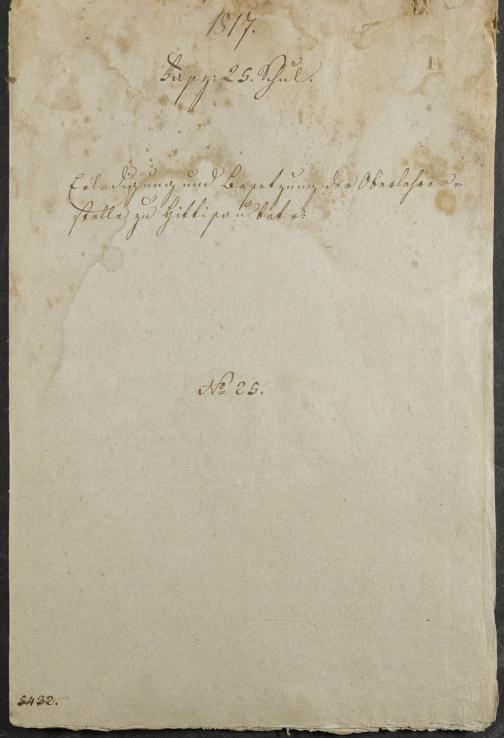 1817.
Fasz: 25. Schul.
Erledigung und Besetzung der Oberlehrers=
stelle zu Hittisau betr:
No 25.
5432.